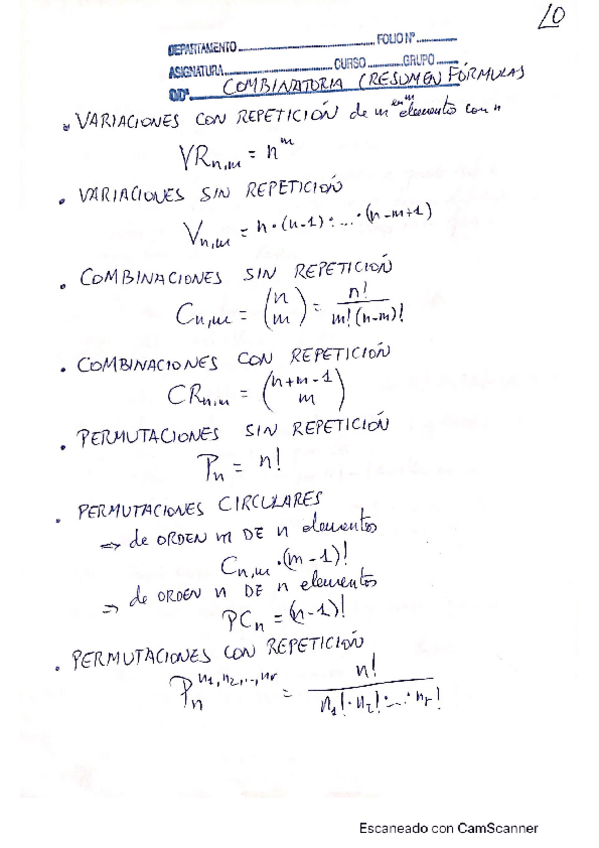 10
DEPARTAMENTO FOLIO Nº
ASIGNATURA CURSO GRUPO
COMBINATORIA (RESUMEN FÓRMULAS
• VARIACIONES CON REPETICIÓN de m elementos con n
VRn,m = n^m
• VARIACIONES SIN REPETICIÓN
Vn,m = n·(n-1)·...·(n-m+1)
• COMBINACIONES SIN REPETICIÓN
Cn,m = (n m) = n! / m!(n-m)!
• COMBINACIONES CON REPETICIÓN
CRn,m = (n+m-1 m)
• PERMUTACIONES SIN REPETICIÓN
Pn = n!
• PERMUTACIONES CIRCULARES
⇒ de ORDEN m DE n elementos
Cn,m·(m-1)!
⇒ de ORDEN n DE n elementos
PCn = (n-1)!
• PERMUTACIONES CON REPETICIÓN
Pn^n1,n2,..,nr = n! / n1!·n2!·...·nr!
Escaneado con CamScanner